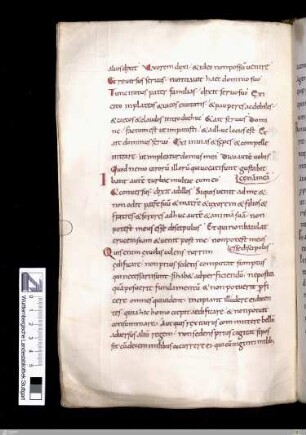 alius dixit Uxorem duxi & ideo non possum venire
Et reversus servus nuntiavit haec domino suo
Tunc iratus pater familias dixit servo suo Exi
cito in plateas & vicos civitatis & pauperes ac debiles
& cecos & claudos introduc huc & ait servus Domi
ne factum est ut imperasti & adhuc locus est Et
ait dominus servo Exi in vias & sepes & compelle
intrare ut impleatur domus mea Dico autem vobis
quod nemo virorum illorum qui vocati sunt gustabit
Ibant autem turbae multae cum eo cenam mea
& conversus dixit ad illos Si quis venit ad me &
non odit patrem suum & matrem & uxorem & filios &
fratres & sorores adhuc autem & animam suam non
potest meus esse discipulus Et qui non baiulat
crucem suam & venit post me non potest meus
Quis enim ex vobis volens turrem esse discipulus
aedificare non prius sedens computat sumptus
qui necessarii sunt si habet ad perficiendum ne postea
quam posuerit fundamentum & non potuerit perfi
cere omnes qui vident incipiant illudere ei dicen
tes quia hic homo coepit aedificare & non potuit
consummare Aut quis rex iturus committere bellum
adversus alium regem non sedens prius cogitat si pos
sit cum decem milibus occurrere ei qui cum viginti milib;
Württembergische Landesbibliothek Stuttgart